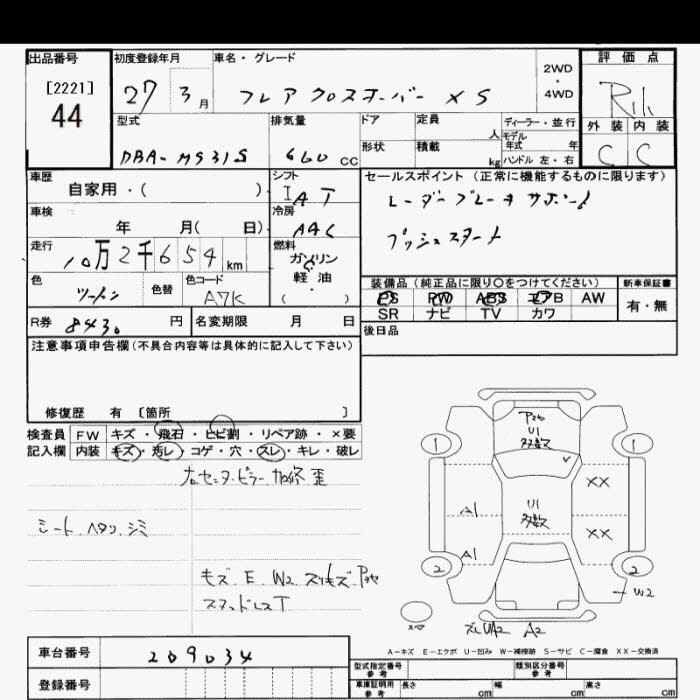 出品番号
[2221]
44
初度登録年月
27 3月
車名・グレード
フレア クロスオーバー XS
2WD
・
4WD
評価点
外装 内装
C C
型式
DBA-MS31S
排気量
660 CC
ドア
形状
定員
人
積載
kg
ディーラー・並行
モデル
年式 年
ハンドル 左・右
車歴
自家用・( )
シフト
IAT
車検
年 月( 日)
冷房
AAC
走行
10万2千654km
燃料
ガソリン
軽油
( )
色
ツートン
色替
色コード
A7K
R券 8430 円
名変期限 月 日
セールスポイント(正常に機能するものに限ります)
レーダーブレーキサポート
プッシュスタート
装備品(純正品に限り〇をつけてください)
PS PW ABS エアB AW
SR ナビ TV カワ
新車保証書
有・無
後日品
注意事項申告欄(不具合内容等は具体的に記入して下さい)
修復歴 有 〔箇所 〕
検査員
記入欄
FW キズ・飛石・ヒビ割・リペア跡・×要
内装 キズ・汚レ・コゲ・穴・スレ・キレ・破レ
シート ヘタリ、シミ
キズ E W2
U1
多数
1 1
XX
A1
U1
多数
XX
A1
2 2
W2
スペア
A2
A-キズ E-エクボ U-凹み W-補修跡 S-サビ C-腐食 XX-交換済
車台番号 209034
登録番号
型式指定番号
参考
類別区分番号
参考
車庫証明用
参考
長さ cm
幅 cm
高さ cm